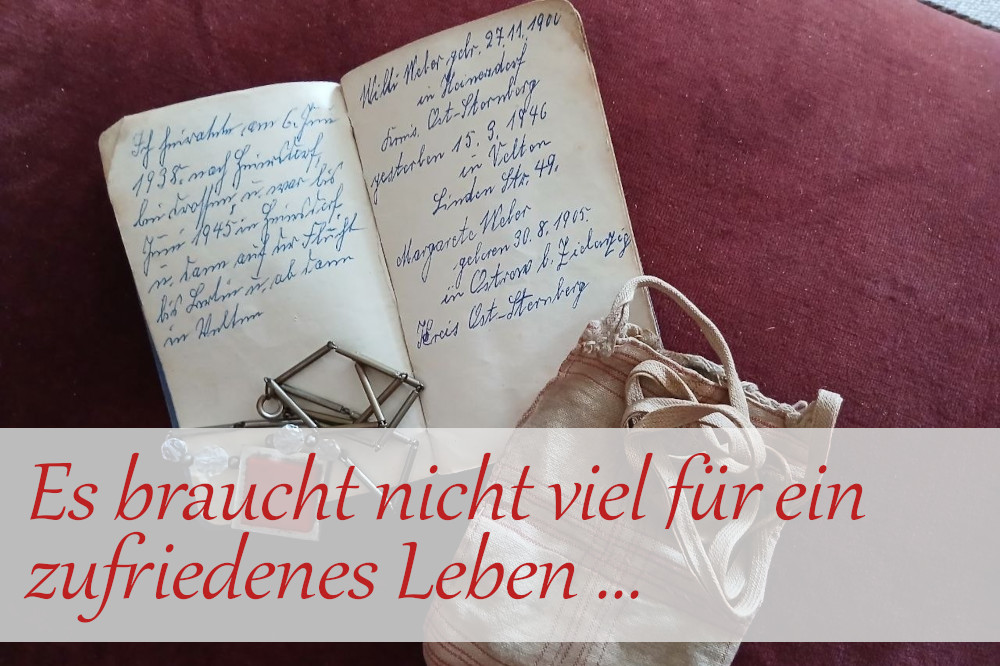 Ich heiratete am 6. Juni
1938. nach Heinersdorf,
bei Drossen u. war bis
Juni 1945 in Heinersdorf
u. dann auf der Flucht
bis Berlin u. ab dann
in Velten
Willi Weber, gebr. 27.11.1900
in Heinersdorf
Kreis. Ost-Sternberg
gestorben 15. 9. 1946
in Velten
Linden Str. 49.
Margarete Weber
geboren 30. 8. 1905.
in Ostrow b. Zielenzig
Kreis Ost-Sternberg
Es braucht nicht viel für ein
zufriedenes Leben ...